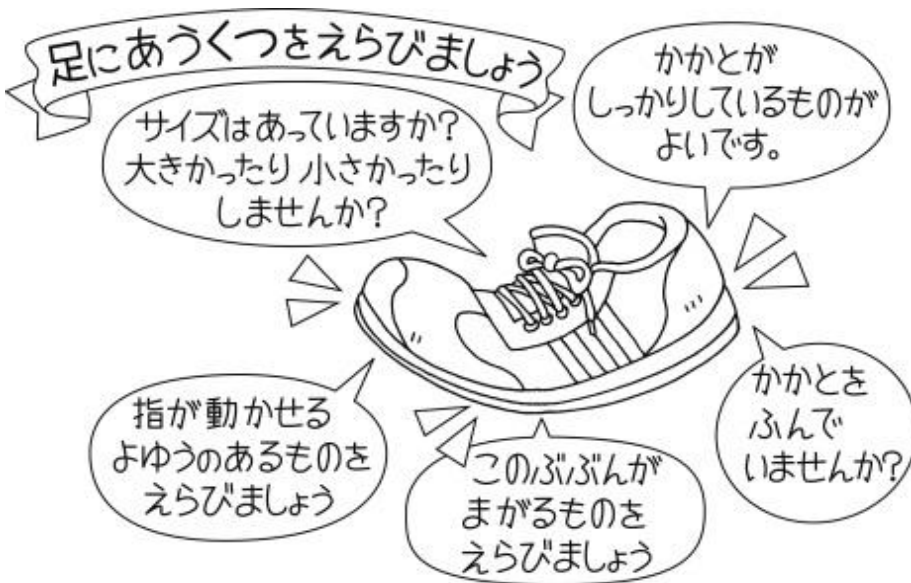 足にあうくつをえらびましょう
サイズはあっていますか?
大きかったり小さかったり
しませんか?
かかとが
しっかりしているものが
よいです。
指が動かせる
よゆうのあるものを
えらびましょう
このぶぶんが
まがるものを
えらびましょう
かかとを
ふんで
いませんか?